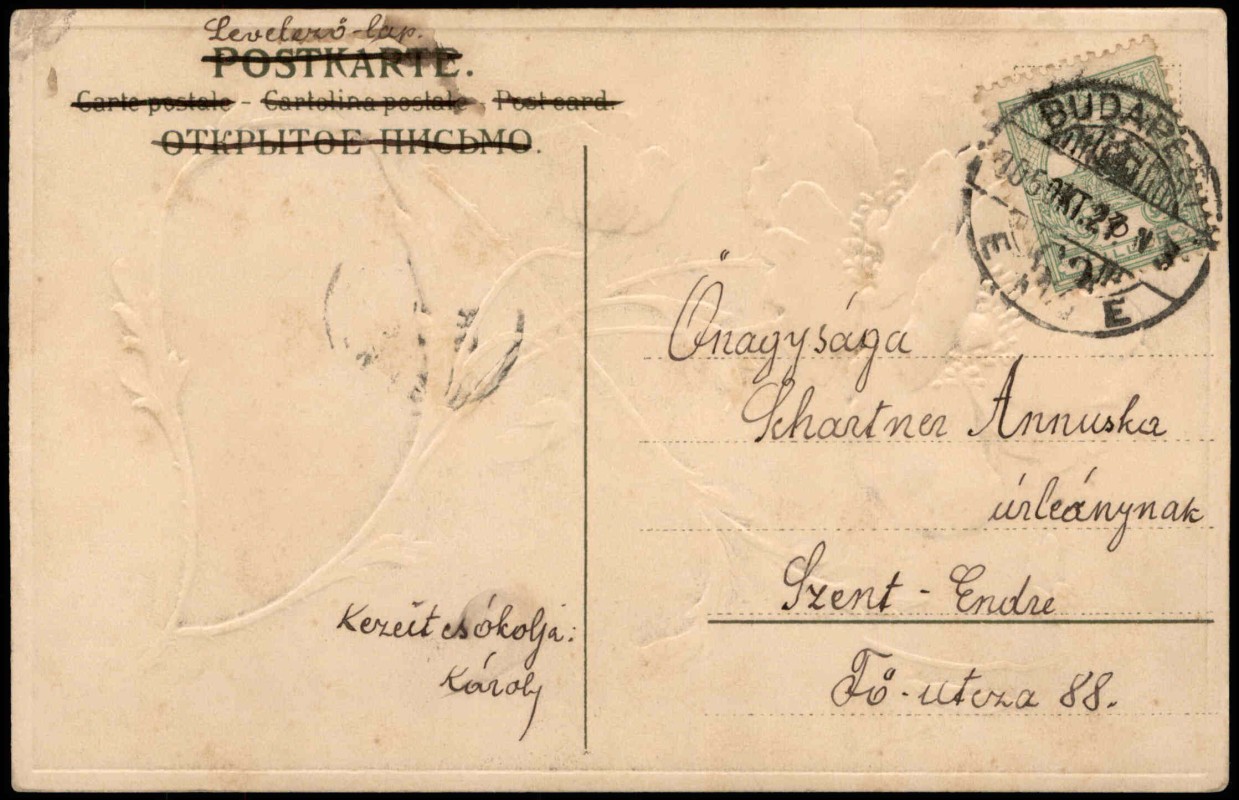 Levelező-lap.
POSTKARTE.
Carte postale - Cartolina postale - Post card.
ОТКРЫТОЕ ПИСЬМО.
BUDAPEST
OKT. 27
Őnagysága
Schartner Annuska
úrleánynak
Szent-Endre
Fő-utcza 88.
Kezeit csókolja:
Károly